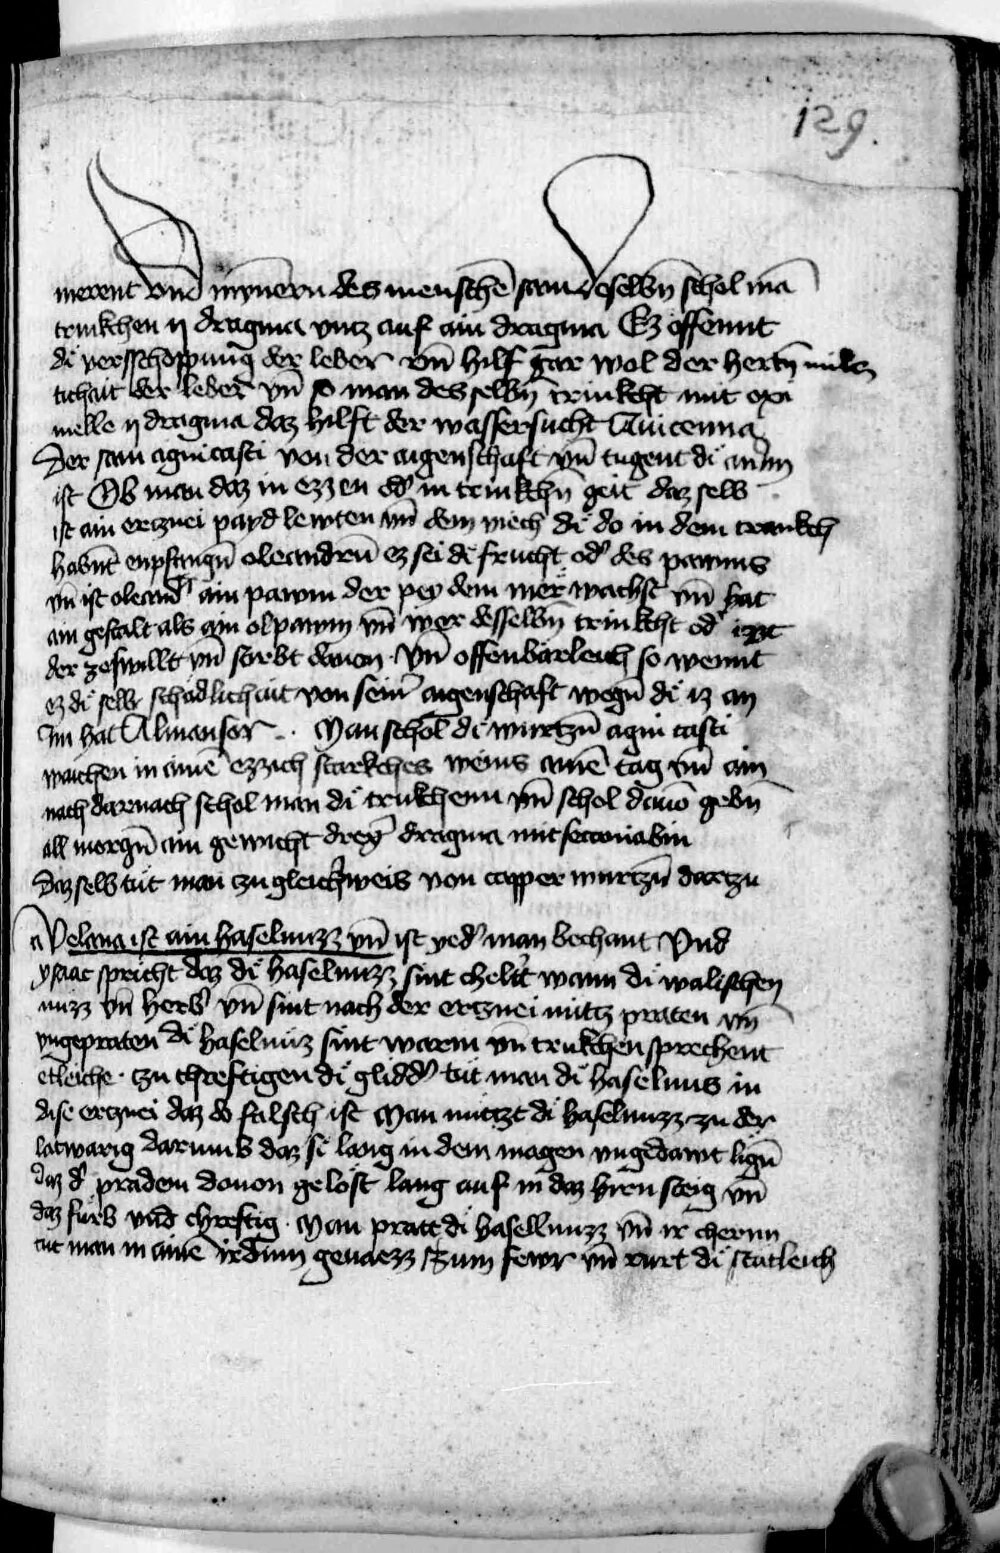 129.
merent vnd mynnern des menschē sam deselbn̄ schol mā
trinkchen ij dragma vntz auf ain dragma Ez offennt
di versschoppung der leber vn̄ hilf gar wol der hertn̄ milcz
tichait der leber vn̄ so man des selbn̄ trinkcht mit oxi
melle ij dragma daz hilft der wassersucht Auicenna
Der sam agnicasti von der aigenschaft vn̄ tugent di an im
ist Ob man daz in ezzen od' in trinkchn̄ geit daz selb
ist ain ertznei payd lewten vn̄ dem viech di do in dem trankch
habnt enpfangn̄ oleandrū ez sei di frucht od' des pawms
vn̄ ist oleand' ain pawm der pey dem mer wachst vn̄ hat
ain gestalt als ain olpawm vn̄ wer desselbn̄ trinkcht od' izzt
der zeswillt vn̄ starbt dauon · Vn̄ offenbarleich so wennt
ez di selb schadlichait von sein' aigenschaft wegn̄ di iz an
Im hat Almansor · Man schol di wurtzn̄ agni casti
waichen in ainē ezzich starkches weins ainē tag vn̄ ain
nach darnach schol man di trukhenn vn̄ schol dauō gebn̄
all morgn̄ ain gewicht drey' dragma mit secaniabin
Daz selb tut man zu gleich'weis von capper wurtzn̄ dartzu
Auelana ist ain haselnuzz vn̄ ist yed' man bechant Vnd
ysaac spricht daz di haselnuzz sint chelt' wann di walischen
nuzz vn̄ herb' vn̄ sint nach der ertznei nutz praten vn̄
vngepraten di haselnuz sint warm vn̄ trukchen sprechent
etleiche · zu chreftigen di glidd' tut man di haselnus in
dise ertznei daz do falsch ist Man nutzt di haselnuzz zu der
latwarig darumb daz si lang in dem magen vngedawt lign̄
daz d' pradem douon gelost lang auf in daz hiren steig vn̄
daz furb vnd chreftig · Man pratt di hasellnuzz vn̄ ir chernn
tut man in ainē irdinn geuaezz zum fewr vn̄ rurt di statleich